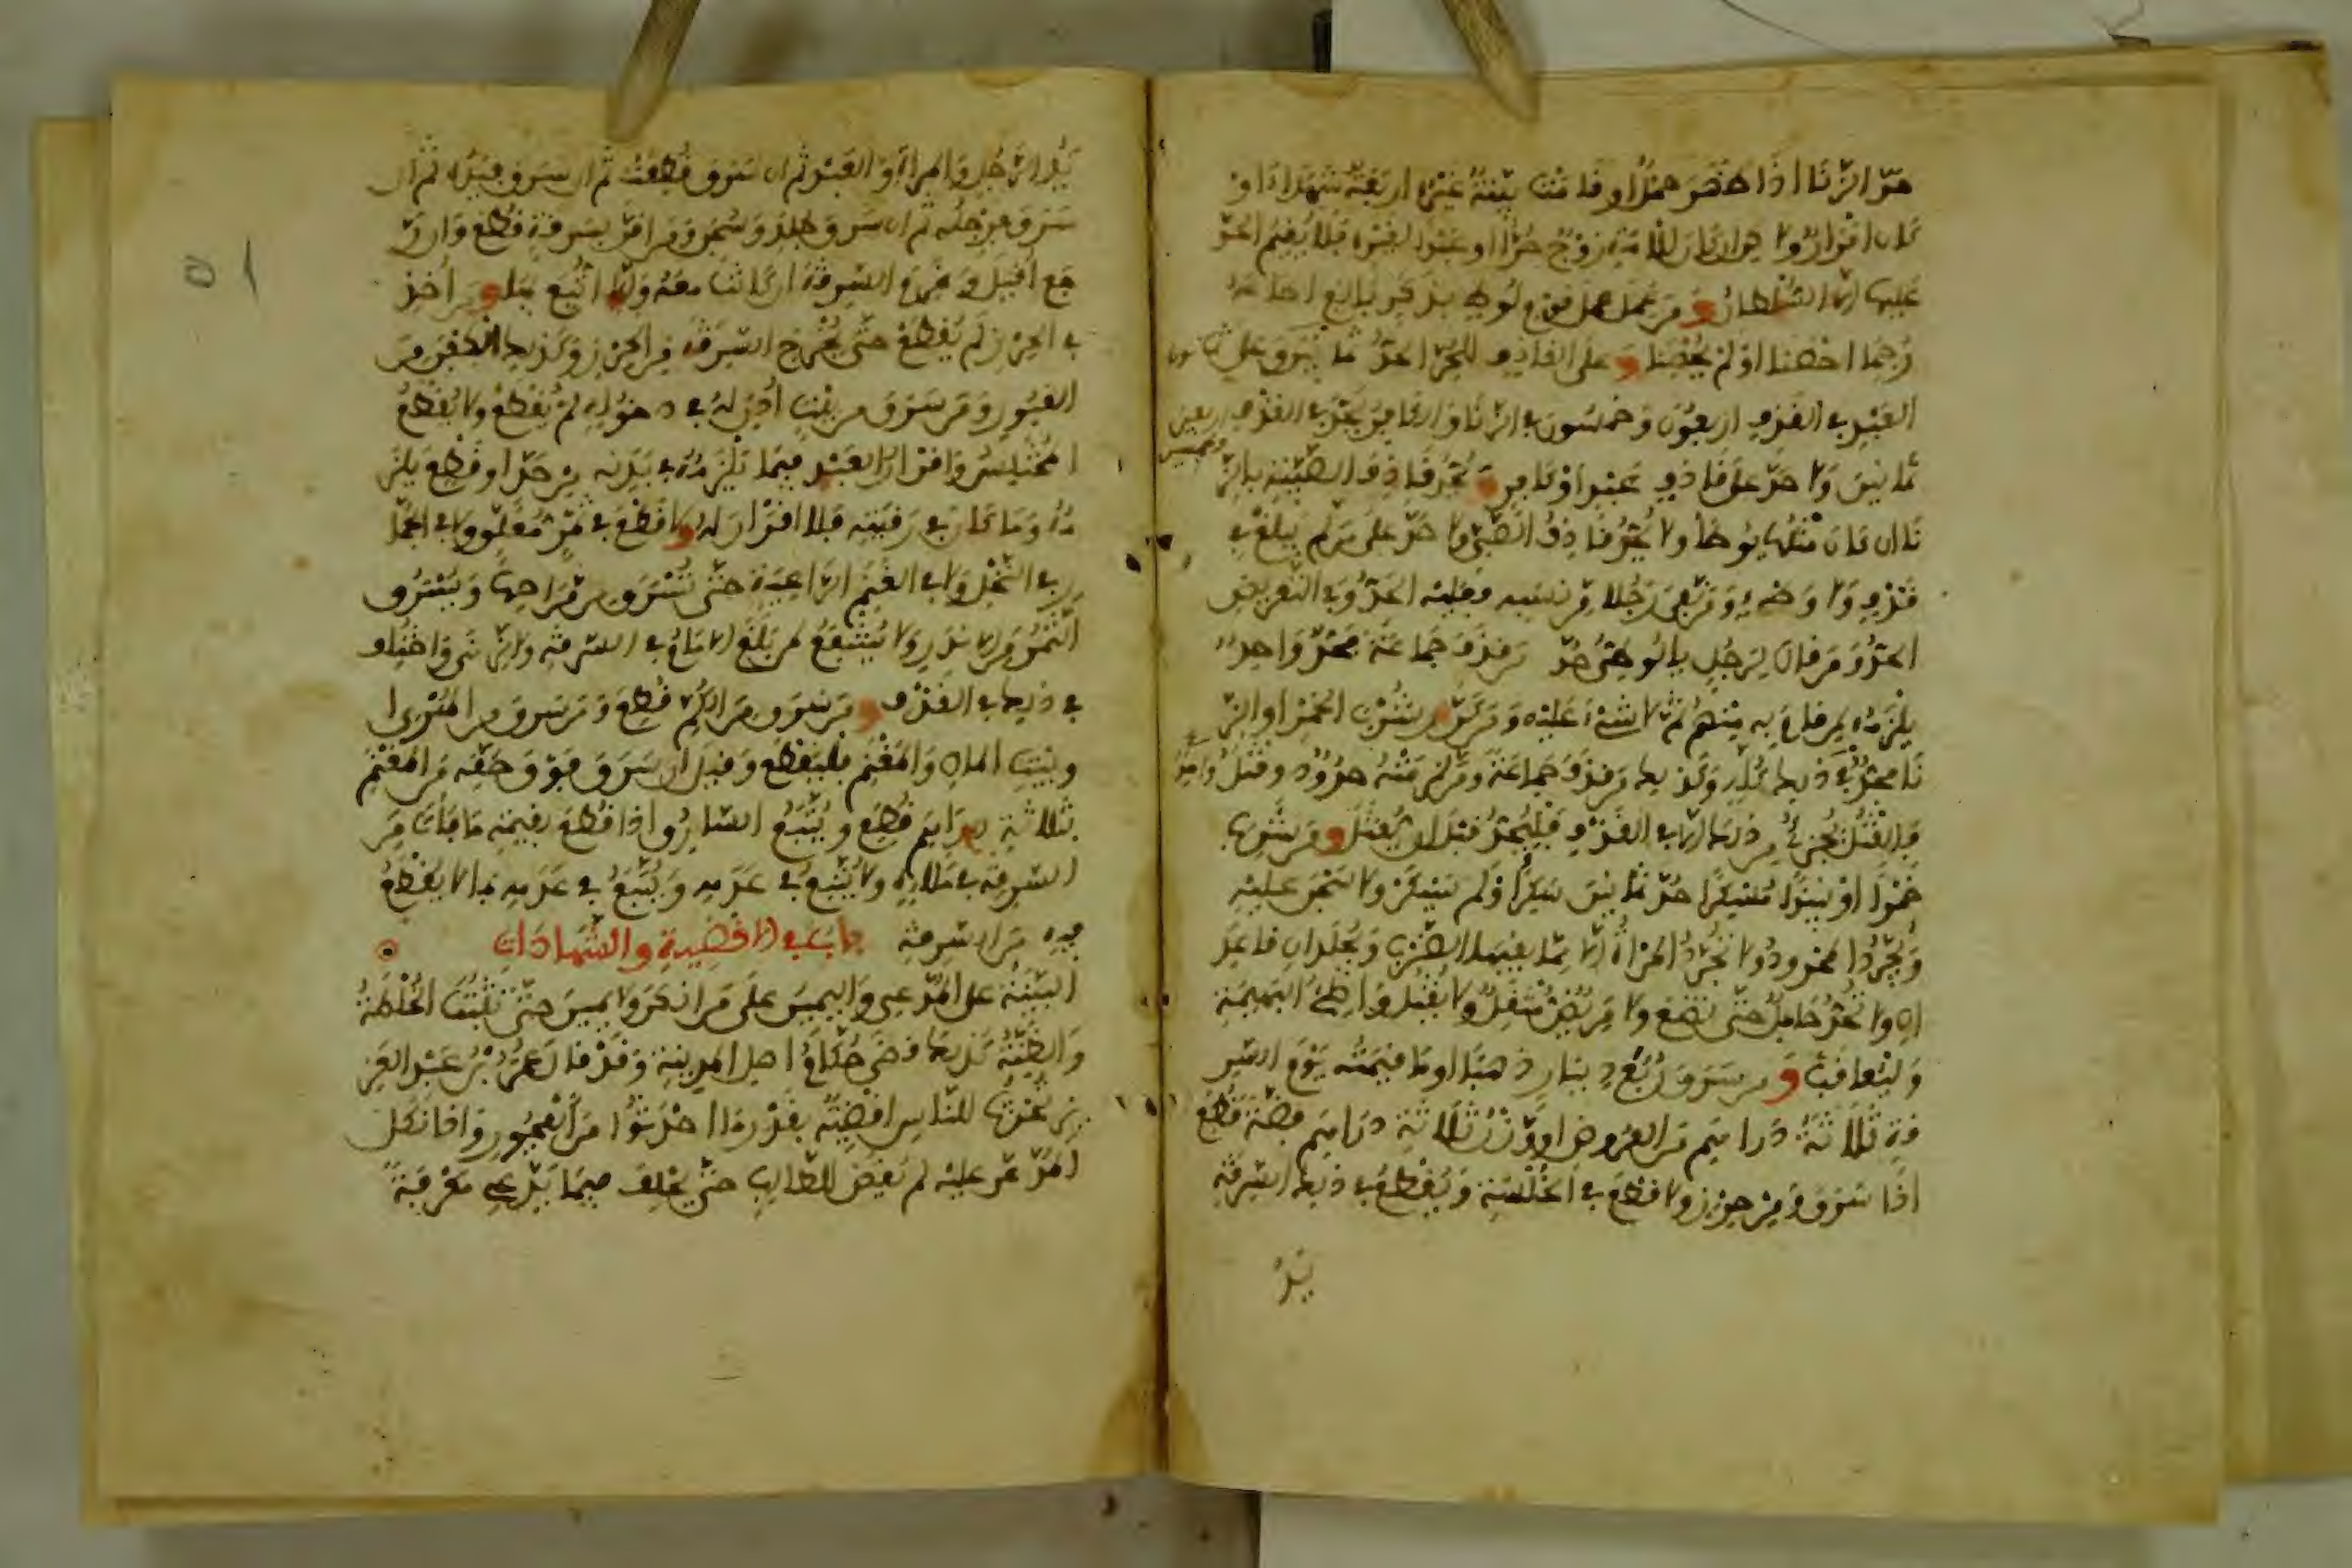 حد الزنا اذا ظهر حمل او قامت بينة غيره اربعة شهداء او
كان اقرار ولو كان للامة زوج حر او عبد لغيره فلا يقيم الحد
عليها الا السلطان ومن عمل عمل قوم لوط بذكر بالغ اطاعه
رجما احصنا او لم يحصنا وعلى القاذف الحر الحد ثمانون وعلى
العبد في القذف اربعون وخمسون في الزنا والكافر يحد في القذف
ثمانين ولا حد على قاذف عبد او كافر ويحد قاذف الصبية بالز
نا ان كان مثلها يوطأ ولا يحد قاذف الصبي ولا حد على من لم يبلغ في
قذف ولا وطء ومن نفى رجلا من نسبه فعليه الحد وفي التعريض
الحد ومن قال لرجل يا لوطي حد ومن قذف جماعة فحد واحد
يلزمه لمن قام به منهم ثم لا شيء عليه ومن كرر شرب الخمر او الز
نا فحد في ذلك كله وكذلك من قذف جماعة ومن لزمته حدود وقتل
فالقتل يجزئ من ذلك الا في القذف فليحد قبل ان يقتل ومن شرب
خمرا او نبيذا مسكرا حد ثمانين سكر او لم يسكر ولا سجن عليه
ويجرد المحدود ولا تجرد المراة الا مما يقيها الضرب ويجلدان قاعد
ان ولا تحد حامل حتى تضع ولا مريض مثقل ولا يقتل واطئ البهيمة
وليعاقب ومن سرق ربع دينار ذهبا او ما قيمته يوم السر
قة ثلاثة دراهم من العروض او وزن ثلاثة دراهم فضة قطع
اذا سرق من حرز ولا قطع في الخلسة ويقطع في ذلك السرقة
يد
يد الرجل والمراة والعبد ثم ان سرق قطعت ثم ان سرق فيده ثم ان
سرق فرجله ثم ان سرق جلد وسجن ومن اقر بسرقة قطع وان ر
جع اقيل وغرم السرقة ان كانت معه والا اتبع بها ومن اخذ
في الحرز لم يقطع حتى يخرج السرقة من الحرز وكذلك الكفن من
القبور ومن سرق من بيت اذن له في دخوله لم يقطع ولا يقطع
المختلس واقرار العبد فيما يلزمه في بدنه من حد او قطع يلز
مه وما كان في رقبته فلا اقرار له ولا قطع في ثمر معلق ولا في الجما
ر في النخل ولا في الغنم الراعية حتى تسرق من مراحها ويسرق
الثمر من الاندر ولا يشفع لمن بلغ الامام في السرقة والزنى واختلف
في ذلك في القذف ومن سرق من الكم قطع ومن سرق من الهري ا
وبيت المال والمغنم فليقطع وقيل ان سرق فوق حقه من المغنم
بثلاثة دراهم قطع ويتبع السارق اذا قطع بقيمة ما فات من
السرقة في ملائه ولا يتبع في عدمه ويتبع في عدمه بما لا يقطع
فيه من السرقة باب في الاقضية والشهادات
البينة على المدعي واليمين على من انكر ولا يمين حتى تثبت الخلطة
والظنة كذلك قضى حكام اهل المدينة وقد قال عمر بن عبد العز
يز تحدث للناس اقضية بقدر ما احدثوا من الفجور واذا نكل
المدعى عليه لم يقض للطالب حتى يحلف فيما يدعي معرفة
٥١